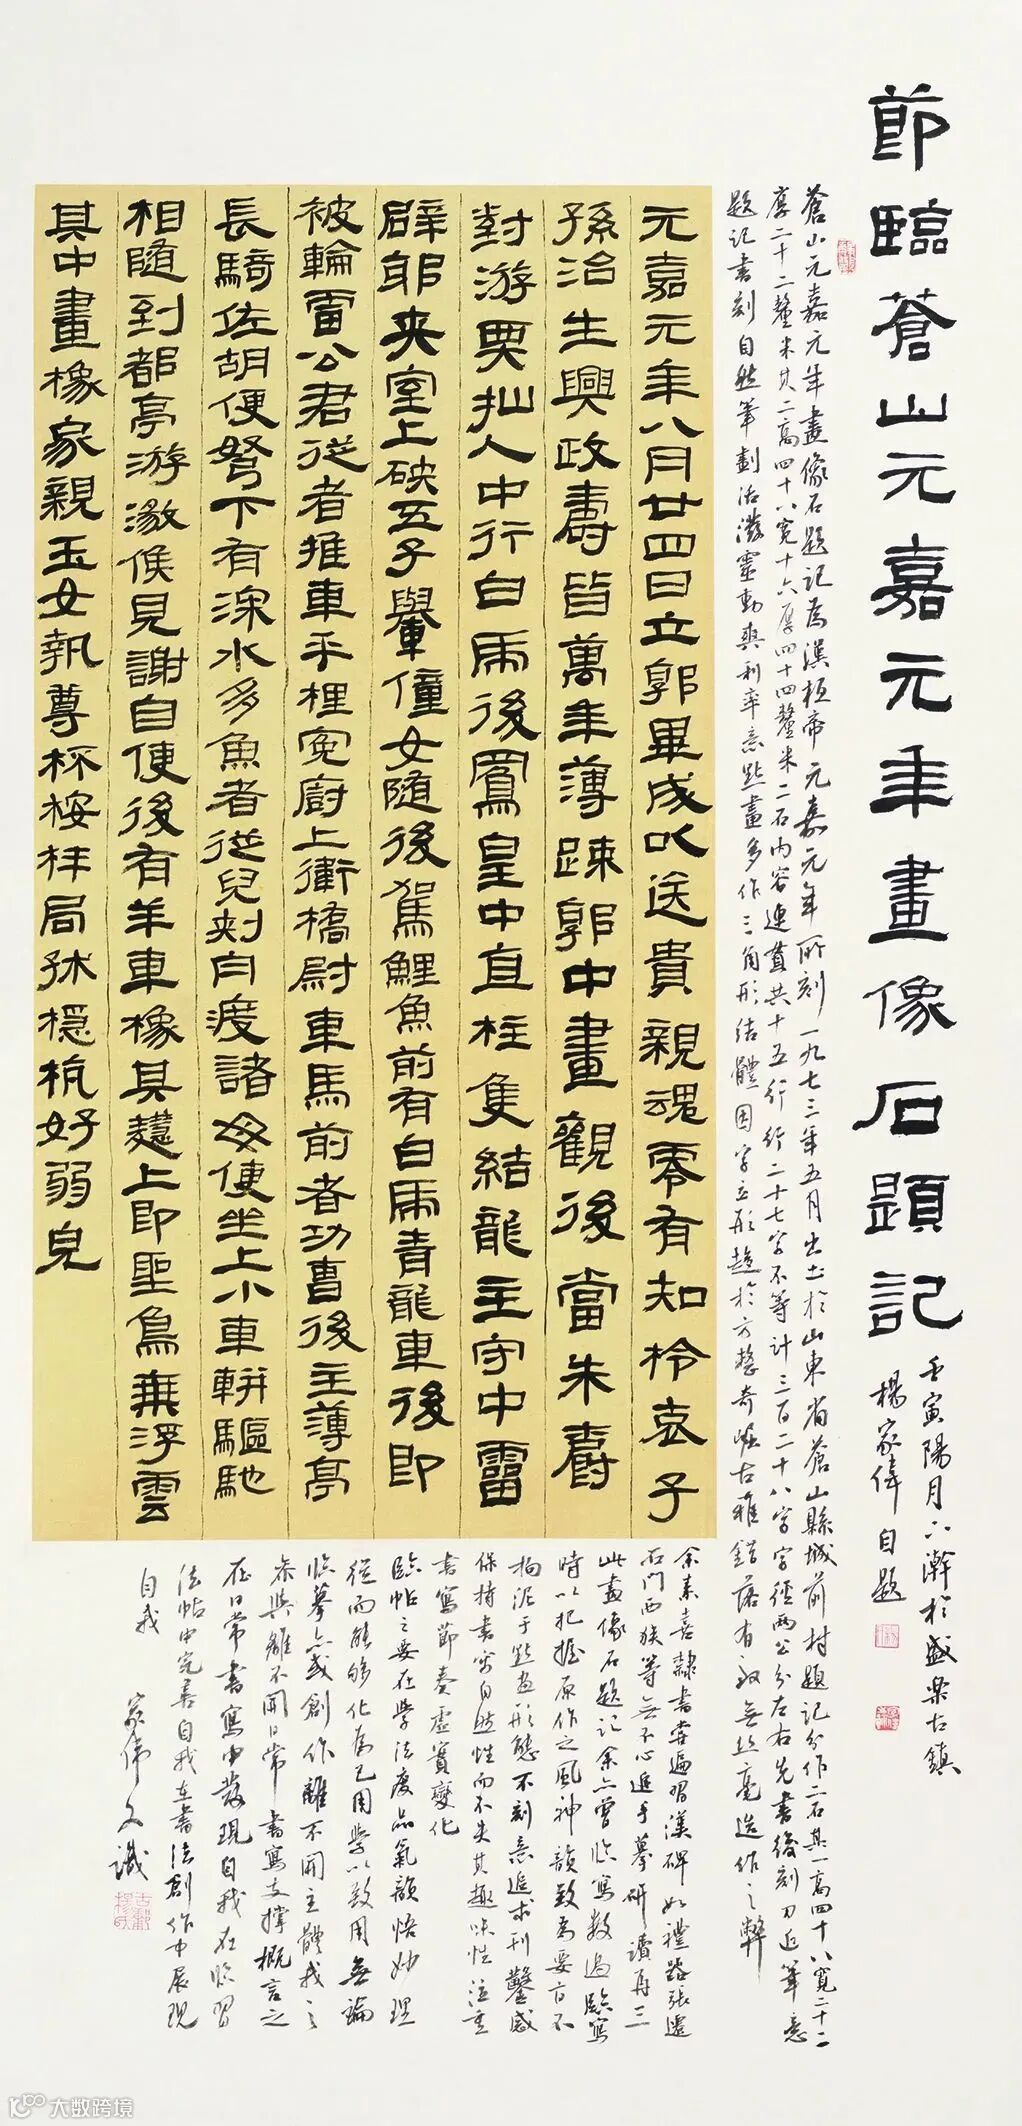 節臨蒼山元嘉元年畫像石題記
壬寅陽月下澣於盛樂古鎮
楊家偉自題
蒼山元嘉元年畫像石題記為漢桓帝元嘉元年所刻一九七三年五月出土於山東省蒼山縣城前村題記分作二石其一高四十八寬二十二
厚二十二釐米其二高四十八寬十六厚四十四釐米二石內容連貫共十五行行二十七字不等計三百二十八字字徑兩公分左右先書後刻刀近筆意
題記書刻自然筆劃活潑靈動爽利率意點畫多作三角形結體因字立形趨於方整奇崛古雅錯落有致無絲毫造作之弊
元嘉元年八月廿四日立郭畢成以送貴親魂零有知柃哀子
孫治生興政壽皆萬年薄踈郭中畫觀後當朱爵
對游㒵抛人中行白虎後鳳皇中直柱隻結龍主守中霤
辟邪夾室上硤五子轝僮女隨後駕鯉魚前有白虎青龍車後即
被輪雷公君從者推車乎梩冤廚上衛橋尉車馬前者功曹後主薄亭
長騎佐胡便弩下有深水多魚者從兒刺舟渡諸母便坐上小車軿驅馳
相隨到都亭游徼候見謝自便後有羊車橡其𨍏上即聖鳥乗浮雲
其中畫橡家親玉女執尊杯桉柈局秫穩杭好弱皃
余素喜隸書嘗遍習漢碑如禮器張遷
石門西狹等無不心追手摹研讀再三
此畫像石題記余亦曾臨寫數過臨寫
時以把握原作之風神韻致為要言不
拘泥于點畫形態不刻意追求刊鑿感
保持書寫自然性而不失其趣味性注重
書寫節奏虛實變化
臨帖之要在學法度品氣韻悟妙理
從而能夠化為己用學以致用無論
臨摹亦或創作離不開主體我之
參與離不開日常書寫支撐概言之
在日常書寫中發現自我在臨習
法帖中完善自我在書法創作中展現
自我
家偉又識
大数跨境